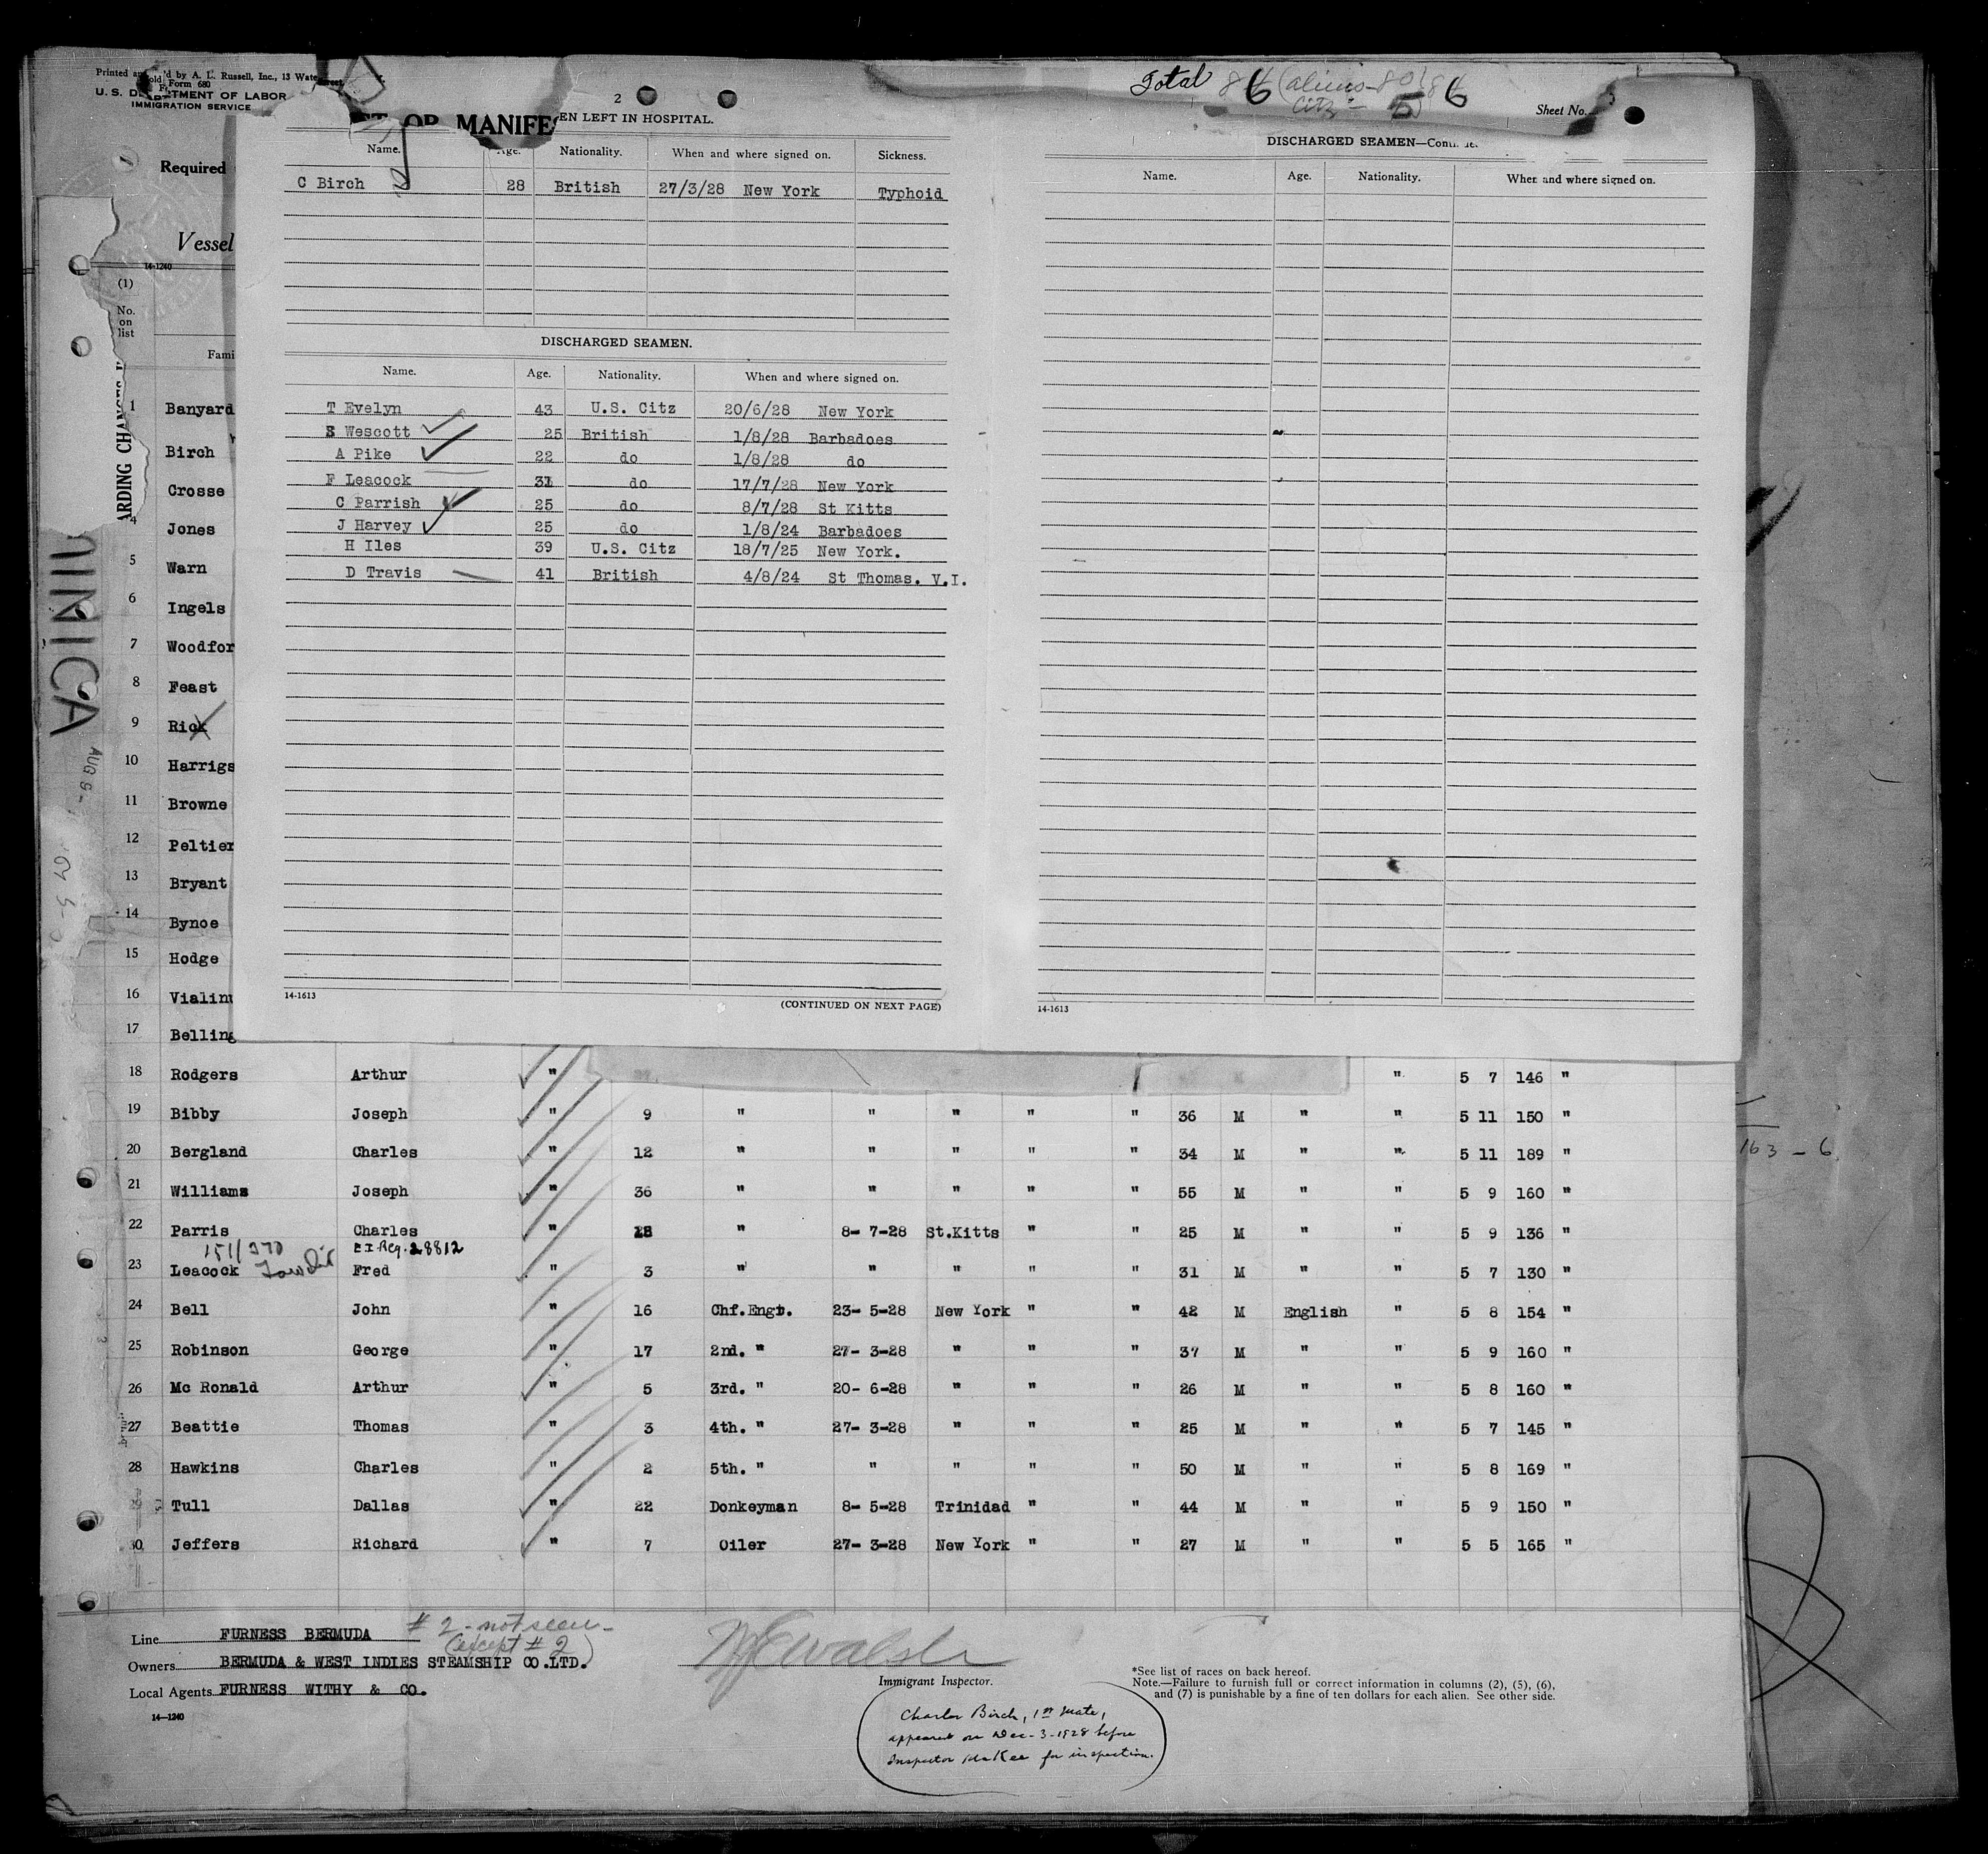 Printed and Sold by A. L. Russell, Inc., 13 Water Street,
Form 680
U.S. DEPARTMENT OF LABOR
IMMIGRATION SERVICE
OR MANIFES
Required
Vessel
14-1240
(1)
No.
on
list
Fami
ARDING CHANGES
MINICA
AUG 9-
Total 86
Sheet No.
2
EN LEFT IN HOSPITAL.
Name. Age. Nationality. When and where signed on. Sickness.
C Birch 28 British 27/3/28 New York Typhoid
DISCHARGED SEAMEN.
Name. Age. Nationality. When and where signed on.
T Evelyn 43 U.S. Citz 20/6/28 New York
S Wescott 25 British 1/8/28 Barbadoes
A Pike 22 do 1/8/28 do
F Leacock 31 do 17/7/28 New York
C Parrish 25 do 8/7/28 St Kitts
J Harvey 25 do 1/8/24 Barbadoes
H Iles 39 U.S. Citz 18/7/25 New York.
D Travis 41 British 4/8/24 St Thomas. V.I.
14-1613
(CONTINUED ON NEXT PAGE)
DISCHARGED SEAMEN—Conti
Name. Age. Nationality. When and where signed on.
14-1613
1 Banyard
Birch
Crosse
4 Jones
5 Warn
6 Ingels
7 Woodfor
8 Feast
9 Rick
10 Harrigs
11 Browne
12 Peltier
13 Bryant
14 Bynoe
15 Hodge
16 Vialinu
17 Belling
18 Rodgers Arthur " " 5 7 146 "
19 Bibby Joseph " 9 " " " " " 36 M " " 5 11 150 "
20 Bergland Charles " 12 " " " " " 34 M " " 5 11 189 "
21 Williams Joseph " 36 " " " " " 55 M " " 5 9 160 "
22 Parris Charles " " 8- 7-28 St.Kitts " " 25 M " " 5 9 136 "
E I Reg. 28812
23 Leacock Fred " 3 " " " " " 31 M " " 5 7 130 "
24 Bell John " 16 Chf.Engr. 23- 5-28 New York " " 42 M English " 5 8 154 "
25 Robinson George " 17 2nd. " 27- 3-28 " " " 37 M " " 5 9 160 "
26 Mc Ronald Arthur " 5 3rd. " 20- 6-28 " " " 26 M " " 5 8 160 "
27 Beattie Thomas " 3 4th. " 27- 3-28 " " " 25 M " " 5 7 145 "
28 Hawkins Charles " 2 5th. " " " " " 50 M " " 5 8 169 "
29 Tull Dallas " 22 Donkeyman 8- 5-28 Trinidad " " 44 M " " 5 9 150 "
30 Jeffers Richard " 7 Oiler 27- 3-28 New York " " 27 M " " 5 5 165 "
163 - 6
Line FURNESS BERMUDA
# 2 - not seen -
(except # 2)
Owners BERMUDA & WEST INDIES STEAMSHIP CO.LTD.
Local Agents FURNESS WITHY & CO.
14—1240
Walsh
Immigrant Inspector.
*See list of races on back hereof.
Note.—Failure to furnish full or correct information in columns (2), (5), (6),
and (7) is punishable by a fine of ten dollars for each alien. See other side.
Charles Birch, 1st Mate,
appeared on Dec-3-1928 before
Inspector McKee for inspection.